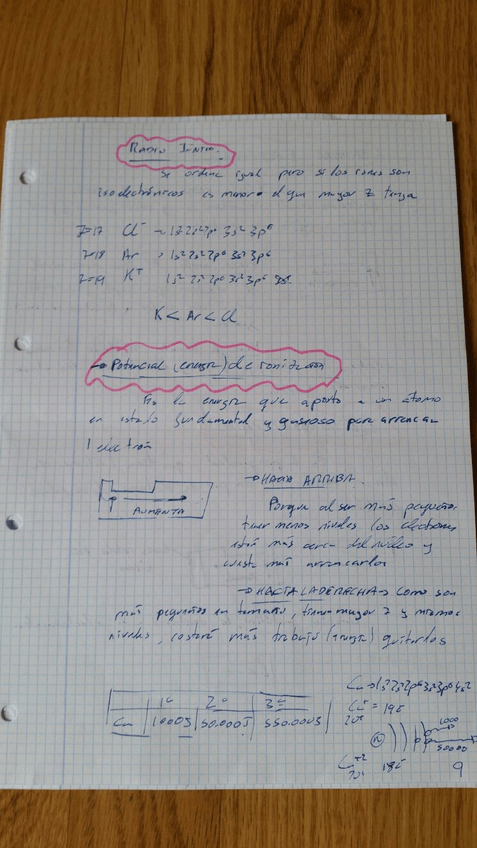 RADIO IÓNICO.
Se ordena igual pero si los iones son
isoelectrónicos es menor el que mayor Z tenga
Z=17 Cl⁻ → 1s²2s²2p⁶ 3s² 3p⁶
Z=18 Ar → 1s²2s²2p⁶ 3s²3p⁶
Z=19 K⁺ 1s² 2s² 2p⁶ 3s² 3p⁶
K < Ar < Cl
→ Potencial (energía) de ionización
Es la energía que aporto a un átomo
en estado fundamental y gaseoso para arrancar
1 electrón
AUMENTA
→ HACIA ARRIBA.
Porque al ser más pequeños
tener menos niveles los electrones
están más cerca del núcleo y
cuesta más arrancarlos
→ HACIA LA DERECHA → Como son
más pequeños en tamaño, tienen mayor Z y mismos
niveles, costará más trabajo (energía) quitarlos
Ca → 1s²2s²2p⁶3s²3p⁶4s²
1º 2º 3º
Ca 1000J 50.000J 550.000J
= 19e
1000
50000
Ca⁺² 18e
9